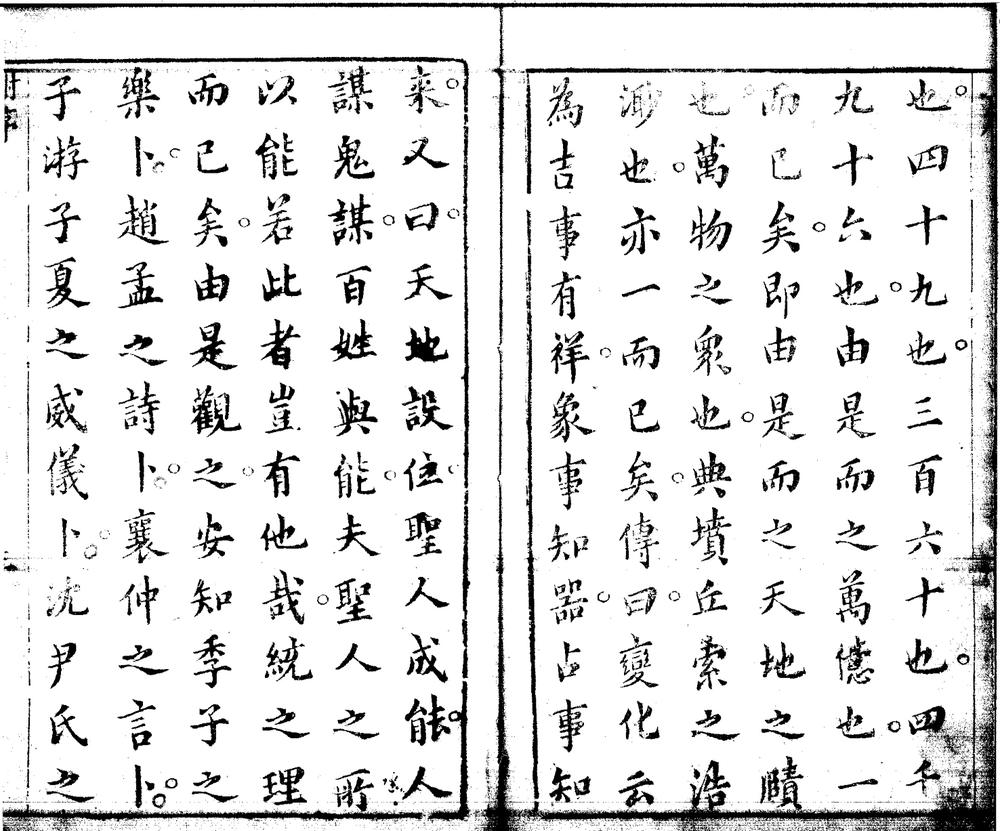 也四十九也三百六十也四千
九十六也由是而之萬億也一
而已矣即由是而之天地之賾
也萬物之衆也典墳丘索之浩
渺也亦一而已矣傳曰變化云
為吉事有祥象事知器占事知
来又曰天地設位聖人成能人
謀鬼謀百姓與能夫聖人之所
以能若此者豈有他哉統之理
而已矣由是觀之安知季子之
樂卜趙孟之詩卜襄仲之言卜
子游子夏之威儀卜沈尹氏之